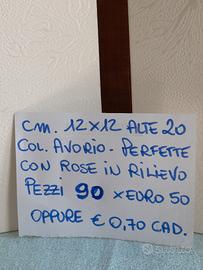 cm. 12x12 ALTE 20
COL. AVORIO - PERFETTE
CON ROSE IN RILIEVO
PEZZI 90 x EURO 50
OPPURE € 0,70 CAD.
subito